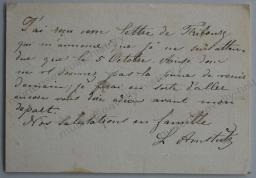 J'ai reçu une lettre de Fribourg
qui m'annonce que je ne suis atten
due que le 5 Octobre. Ainsi donc
ne vous donnez pas la peine de venir
demain; je ferai en sorte d'aller
encore vous dire adieu avant mon
départ.
Nos salutations en famille
L Amstutz